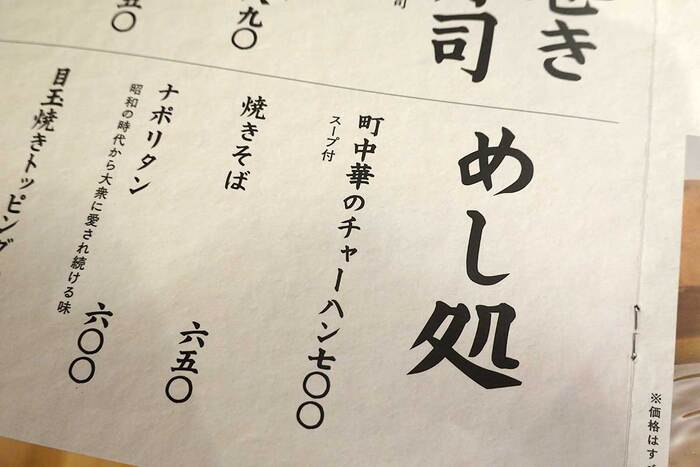 き
司
司
九〇
五〇
めし処
町中華のチャーハン 七〇〇
スープ付
焼きそば 六五〇
ナポリタン 六〇〇
昭和の時代から大衆に愛され続ける味
目玉焼きトッピング
※価格はす